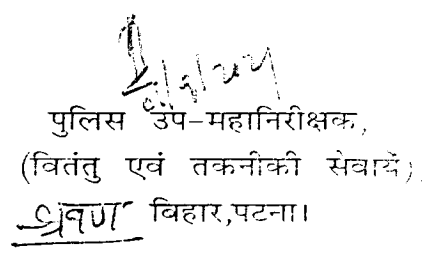 पुलिस उप-महानिरीक्षक,
(वितंतु एवं तकनीकी सेवायें)
श्रवण बिहार,पटना।